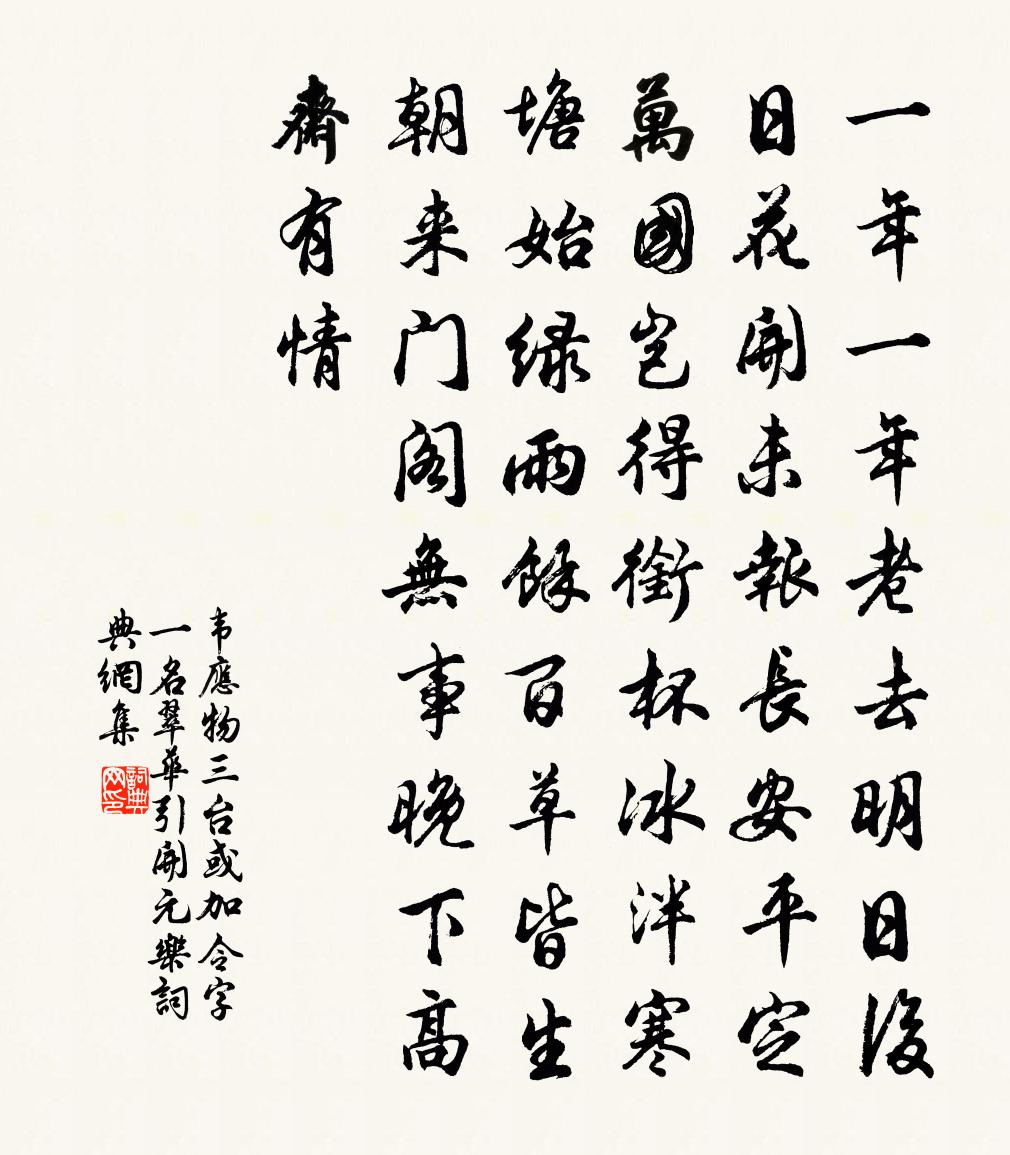 一年一年老去明日後
日花開未報長安平定
萬國豈得銜杯冰泮寒
塘始绿雨餘百草皆生
朝来门阁無事晚下高
齋有情
韦應物三台或加令字
一名翠華引開元樂詞
典網集
詞典网印